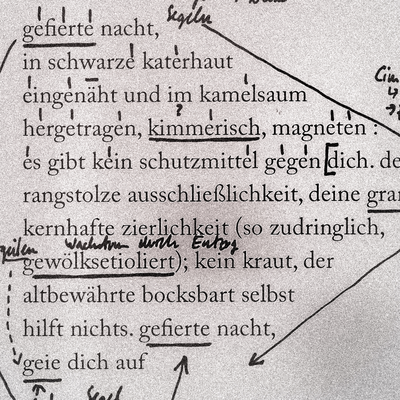 Segeln
gefierte nacht,
in schwarze katerhaut
eingenäht und im kamelsaum
?
hergetragen, kimmerisch, magneten :
es gibt kein schutzmittel gegen [dich. de
rangstolze ausschließlichkeit, deine gran
kernhafte zierlichkeit (so zudringlich,
Wachstum durch Entzug
gewölksetioliert); kein kraut, der
altbewährte bocksbart selbst
hilft nichts. gefierte nacht,
geie dich auf